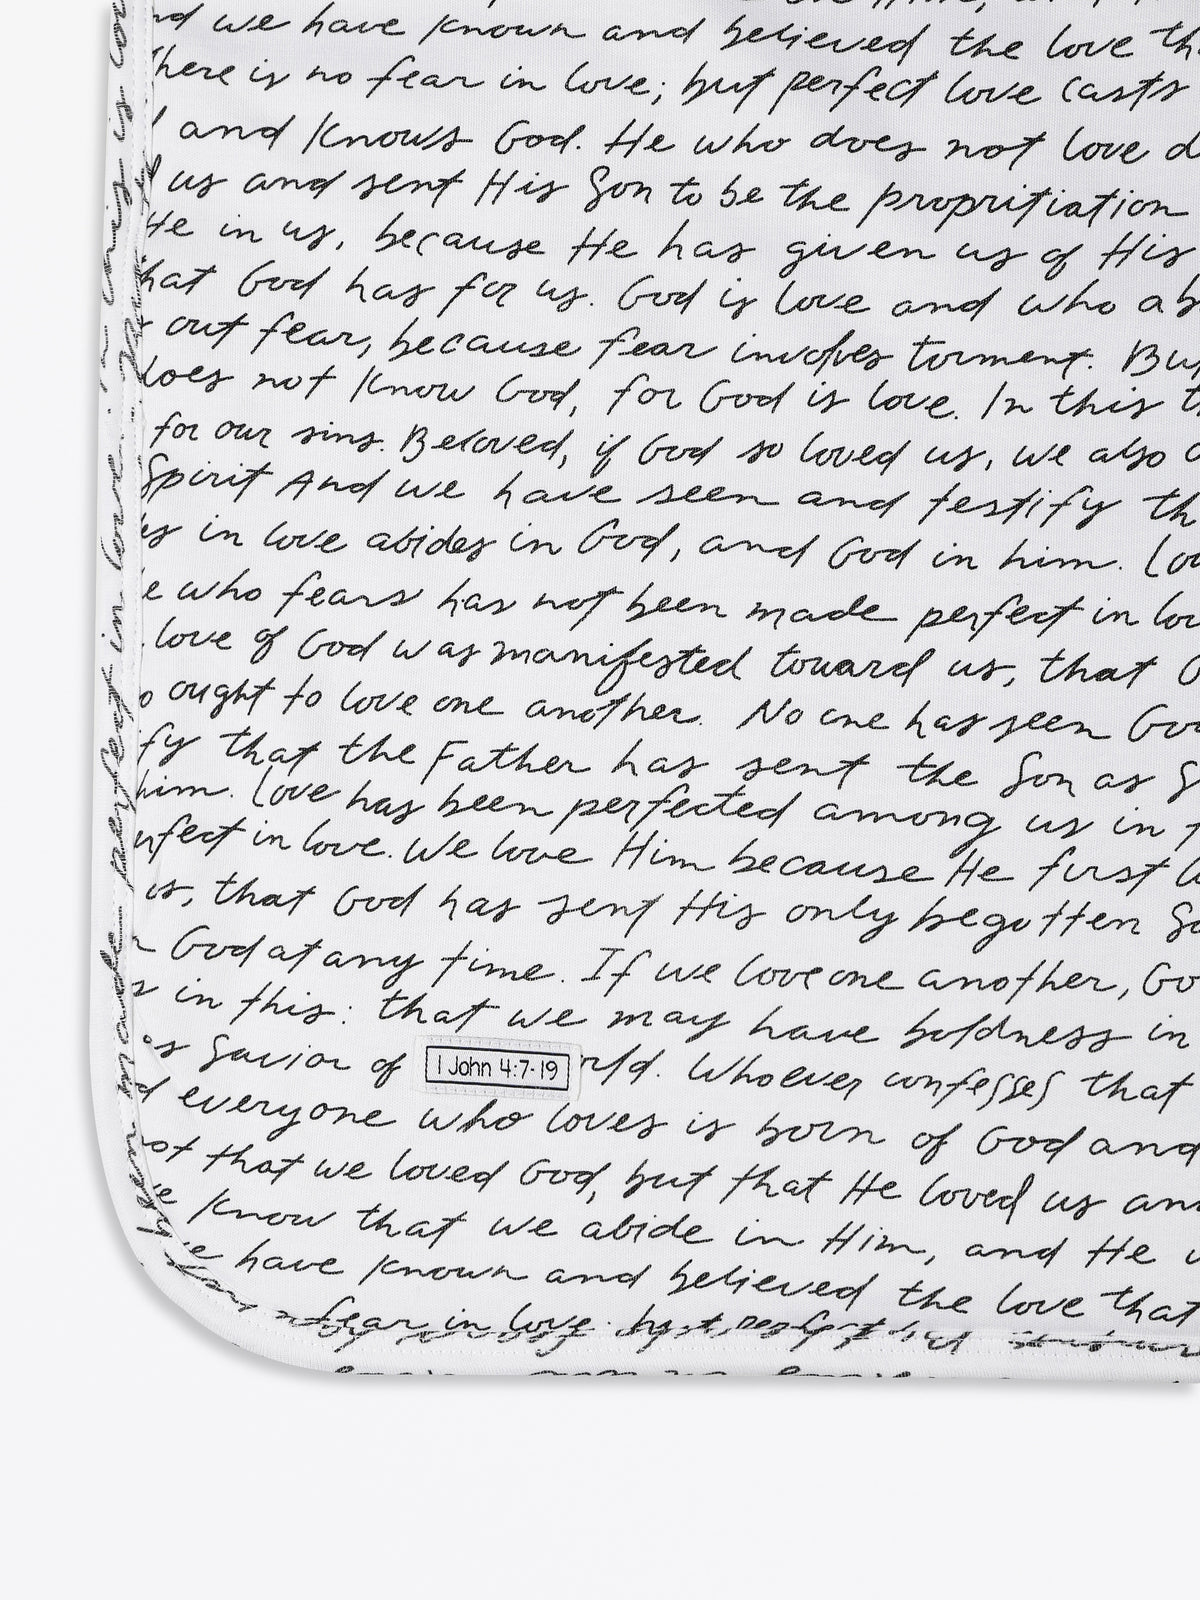 we have known and believed the love
there is no fear in love; but perfect love casts
and knows God. He who does not love
us and sent His Son to be the propritiation
He in us, because He has given us of His
that God has for us. God is love and who ab
out fear, because fear involves torment. But
does not know God, for God is love. In this
for our sins. Beloved, if God so loved us, we also
Spirit And we have seen and testify
in love abides in God, and God in him. Lov
who fears has not been made perfect in lov
love of God was manifested toward us, that
ought to love one another. No one has seen God
fy that the Father has sent the Son as S
him. Love has been perfected among us in
rfect in love. We love Him because He first
us, that God has sent His only begotten So
God at any time. If we love one another, Go
in this: that we may have boldness in
as Savior of rld. Whoever confesses that
1 John 4:7-19
everyone who loves is born of God and
that we loved God, but that He loved us and
know that we abide in Him, and He
have known and believed the love that
fear in love but perfect
been made perfect in love.